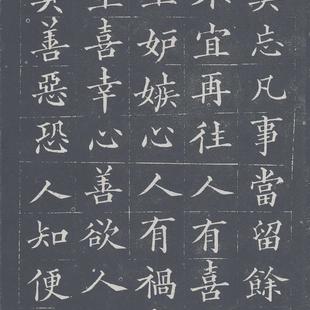 莫忘凡事當留餘
不宜再往人有喜
生妒嫉心人有禍
生喜幸心善欲人
真善惡恐人知便